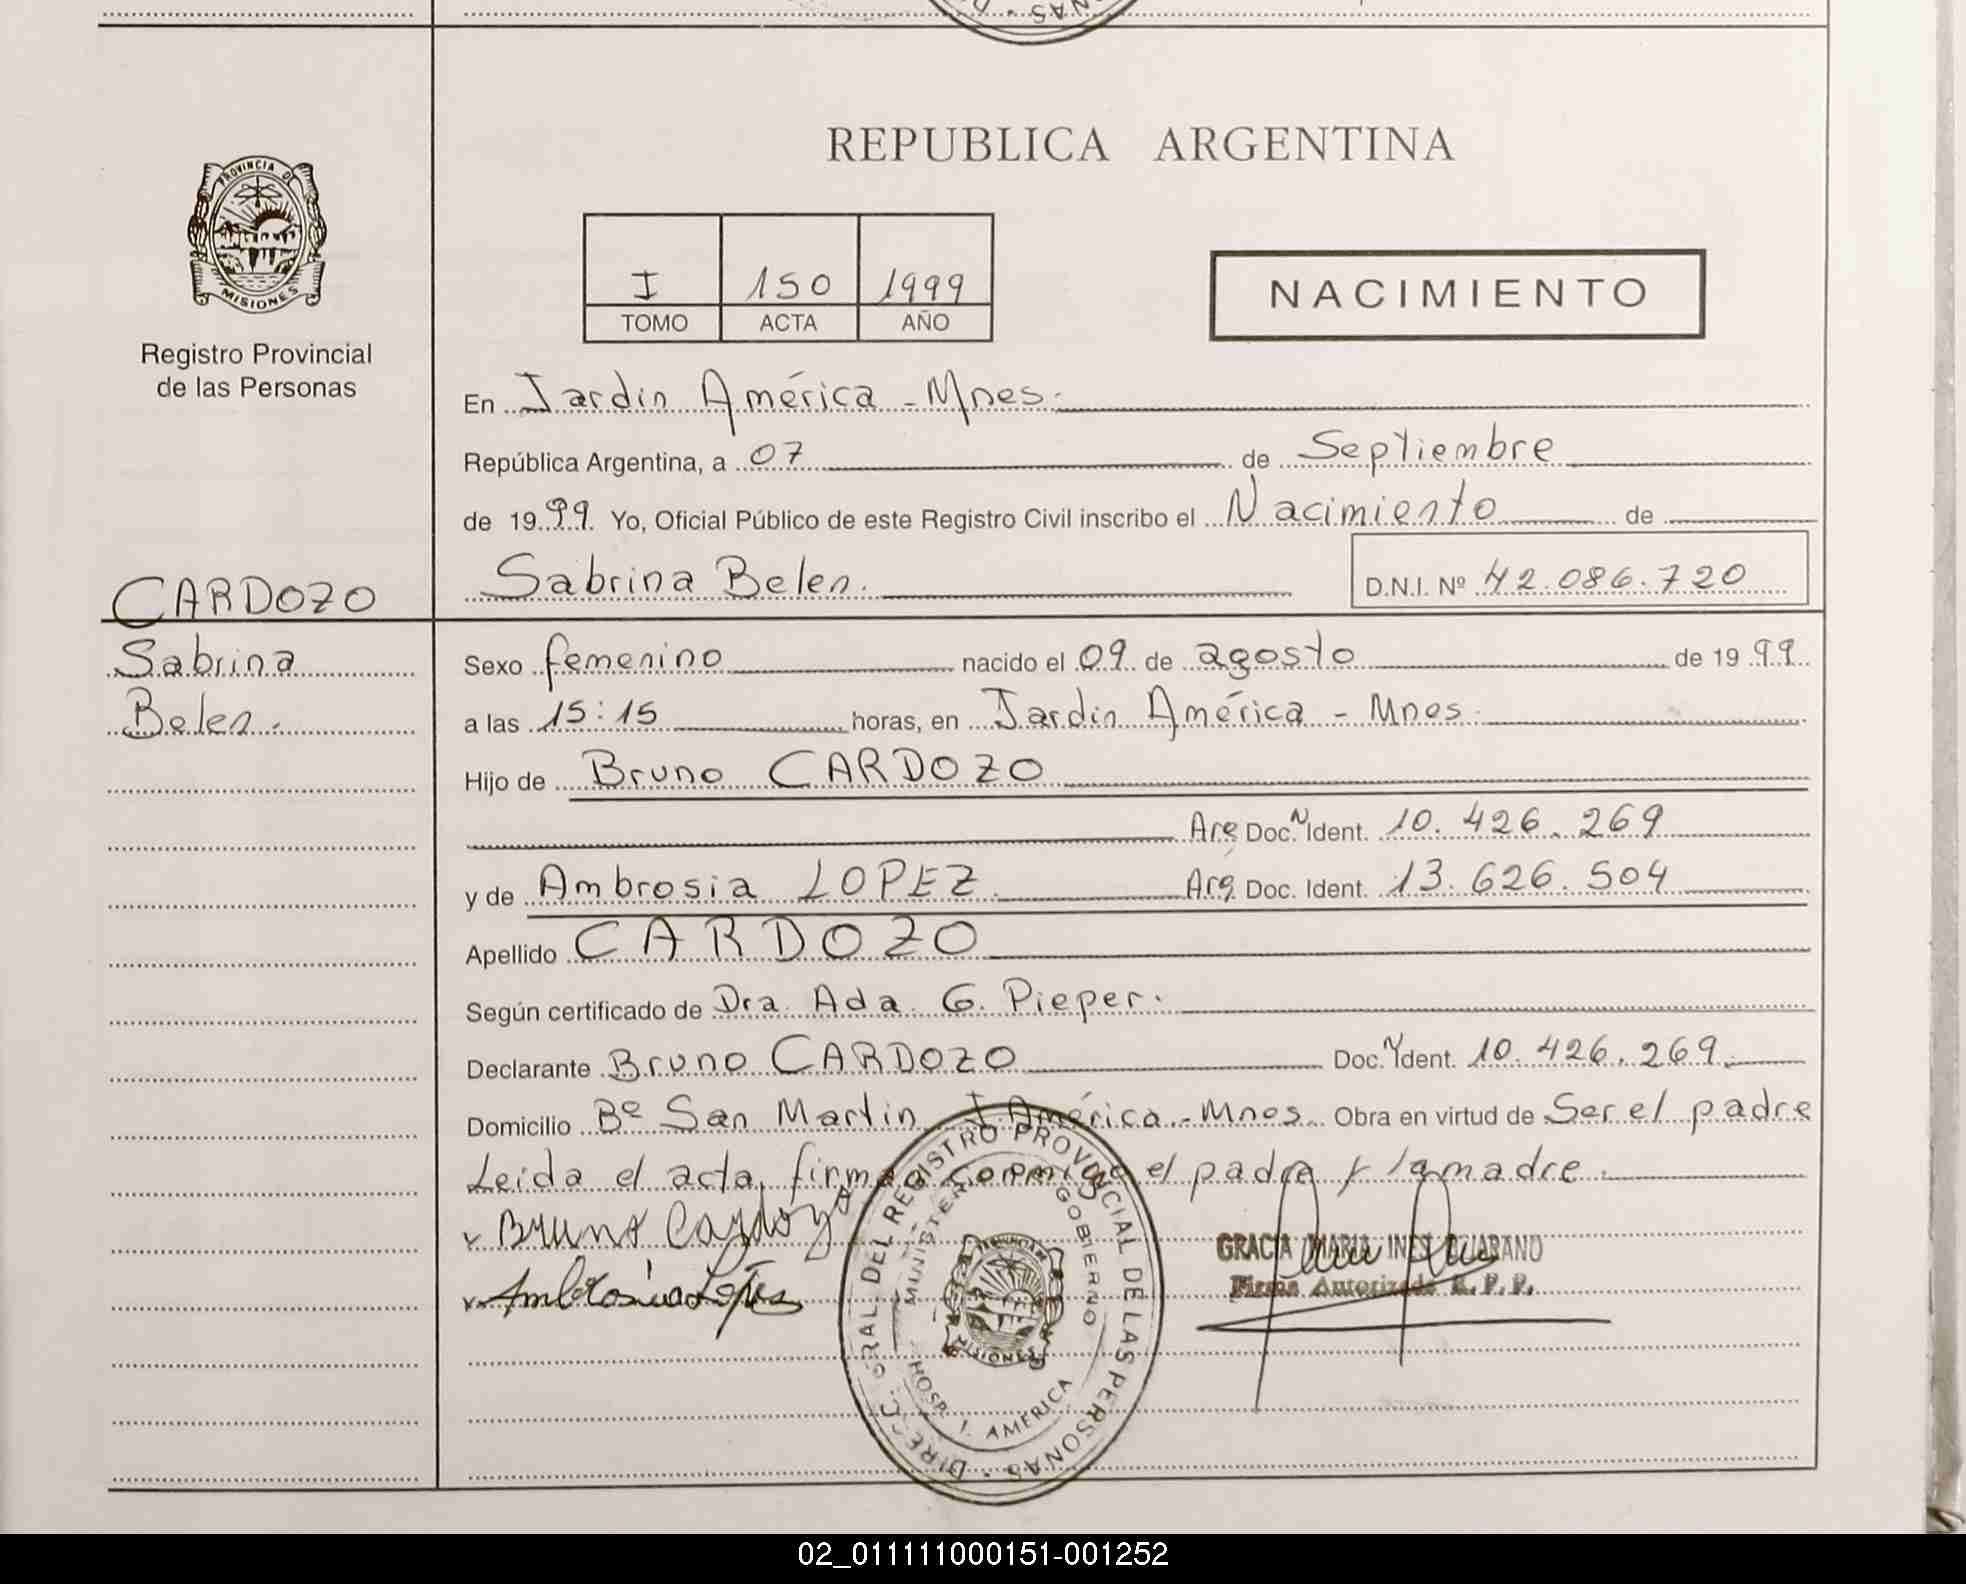 REPUBLICA ARGENTINA
PROVINCIA DE
MISIONES
Registro Provincial
de las Personas
I 150 1999
TOMO ACTA AÑO
NACIMIENTO
En Jardin América - Mnes.
República Argentina, a 07 de Septiembre
de 1999 Yo, Oficial Público de este Registro Civil inscribo el Nacimiento de
CARDOZO
Sabrina
Belen.
Sabrina Belen. D.N.I. Nº 42.086.720
Sexo femenino nacido el 09 de agosto de 1999
a las 15:15 horas, en Jardin América - Mnes.
Hijo de Bruno CARDOZO
Arg Doc. N Ident. 10.426.269
y de Ambrosia LOPEZ Arg. Doc. Ident. 13.626.504
Apellido CARDOZO
Según certificado de Dra. Ada G. Pieper.
Declarante Bruno CARDOZO Doc. N Ident. 10.426.269.
Domicilio Bº San Martin J. América.-Mnes. Obra en virtud de Ser el padre
Leida el acta, firma conmigo el padre y la madre.
Bruno Cardozo
Ambrosia Lopez
GRACIA MARIA INES
Firma Autorizada R. P. P.
DIREC. GRAL. DEL REGISTRO PROVINCIAL DE LAS PERSONAS
MINISTERIO GOBIERNO
HOSP. J. AMERICA
MISIONES
02_011111000151-001252